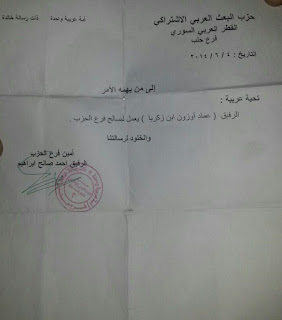 حزب البعث العربي الاشتراكي
أمة عربية واحدة
ذات رسالة خالدة
القطر العربي السوري
فرع حلب
التاريخ : ٤ / ٦ / ٢٠١٤
إلى من يهمه الأمر
تحية عربية :
الرفيق ( عماد أوزون ابن زكريا ) يعمل لصالح فرع الحزب .
والخلود لرسالتنا
أمين فرع الحزب
الرفيق احمد صالح ابراهيم